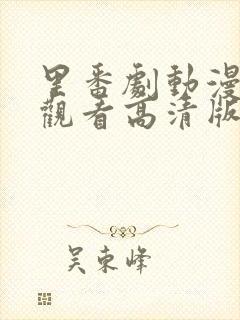 里番劇動漫
觀看高清版
吴東峰